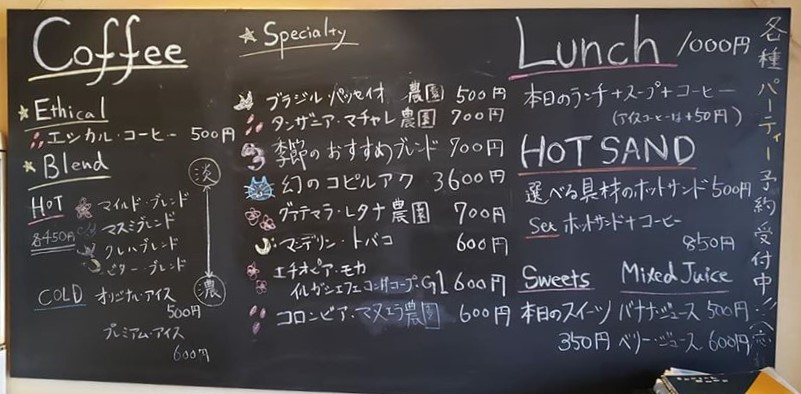 Coffee
★Ethical
エシカル・コーヒー 500円
★Blend
淡
HOT
各450円
マイルド・ブレンド
マスミブレンド
クレハブレンド
ビター・ブレンド
濃
COLD オリジナル・アイス
500円
プレミアム・アイス
600円
★Specialty
ブラジル・パッセイオ 農園 500円
タンザニア・マチャレ農園 700円
季節のおすすめブレンド 700円
幻のコピルアク 3600円
グァテマラ・レタナ農園 700円
マンデリン・トバコ 600円
エチオピア・モカ
イルガシェフェ コンガコープ・G1 600円
コロンビア・マヌエラ農園 600円
Lunch 1000円
本日のランチ+スープ+コーヒー
(アイスコーヒーは+50円)
HOT SAND
選べる具材のホットサンド500円
Set ホットサンド+コーヒー
850円
Sweets
本日のスイーツ
350円
Mixed Juice
バナナ・ジュース 500円
ベリー・ジュース 600円
各種パーティー予約受付中!!